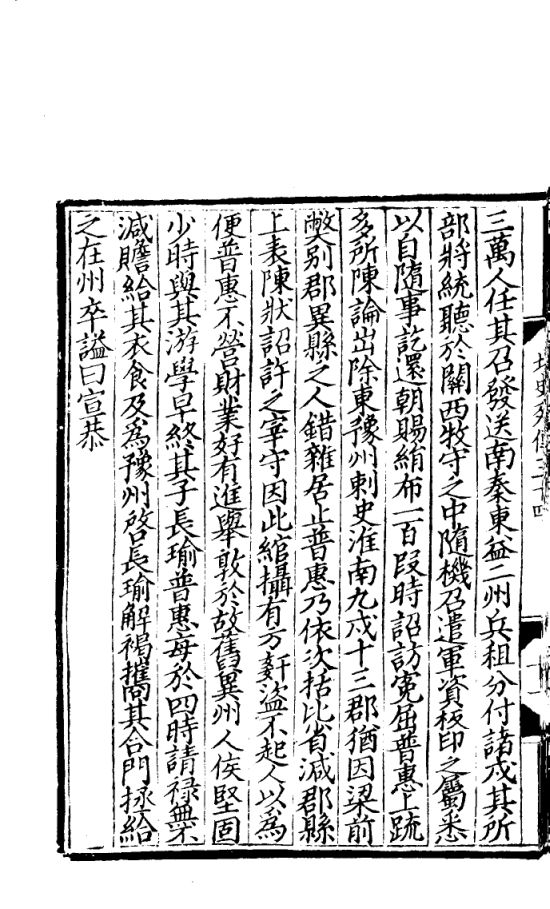 三萬人任其召發送南秦東益二州兵租分付諸戍其所
部將統聽於關西牧守之中隨機召遣軍資板印之屬悉
以自隨事訖還朝賜絹布一百段時詔訪寃屈普惠上疏
多所陳論出除東豫州刺史淮南九戍十三郡猶因梁前
弊别郡異縣之人錯雜居止普惠乃依次括比省減郡縣
上表陳狀詔許之宰守因此綰攝有方姧盜不起人以爲
便普惠不營財業好有進舉敦於故舊冀州人侯堅固
少時與其游學早終其子長瑜普惠每於四時請禄無不
減贍給其衣食及爲豫州啓長瑜解褐攜其合門拯給
之在州卒謚曰宣恭